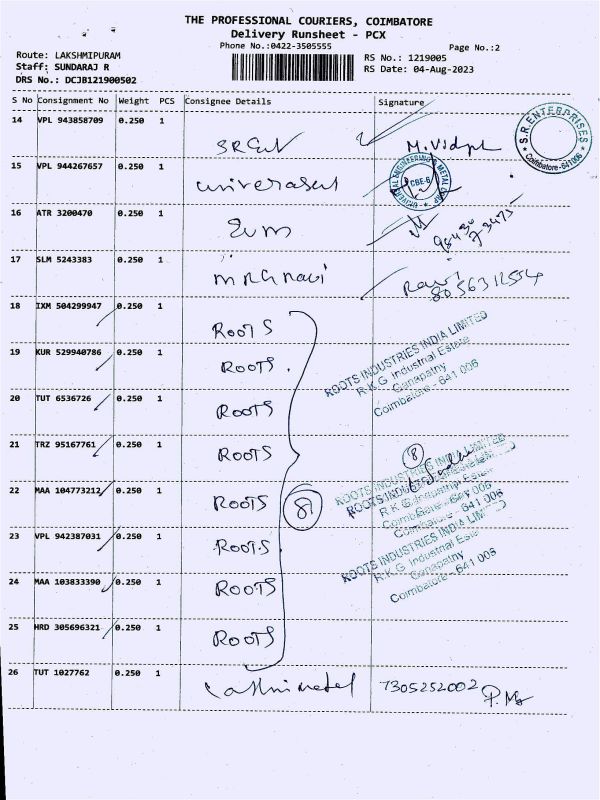 THE PROFESSIONAL COURIERS, COIMBATORE
Delivery Runsheet - PCX
Phone No.:0422-3505555
Page No.:2
Route: LAKSHMIPURAM
RS No.: 1219005
Staff: SUNDARAJ R
RS Date: 04-Aug-2023
DRS No.: DCJB121900502
S No Consignment No Weight PCS Consignee Details Signature
14 VPL 943858709 0.250 1
S.R.ENTERPRISES
Coimbatore-641006
15 VPL 944267657 0.250 1
UNIVERSAL ENGINEERING & METAL CORP
CBE-6
16 ATR 3200470 0.250 1
17 SLM 5243383 0.250 1 MRG Ravi Ravi
8056312554
18 IXM 504299947 0.250 1 ROOTS
19 KUR 529940786 0.250 1 ROOTS.
ROOTS INDUSTRIES INDIA LIMITED
R.K.G Industrial Estate
Ganapathy
Coimbatore - 641 006
20 TUT 6536726 0.250 1 ROOTS
21 TRZ 95167761 0.250 1 ROOTS
8
22 MAA 104773212 0.250 1 ROOTS 8
ROOTS INDUSTRIES INDIA LIMITED
23 VPL 942387031 0.250 1 ROOTS
ROOTS INDUSTRIES INDIA LIMITED
R.K.G Industrial Estate
Ganapathy
Coimbatore - 641 006
24 MAA 103833390 0.250 1 ROOTS
25 HRD 305696321 0.250 1 ROOTS
26 TUT 1027762 0.250 1 7305252002